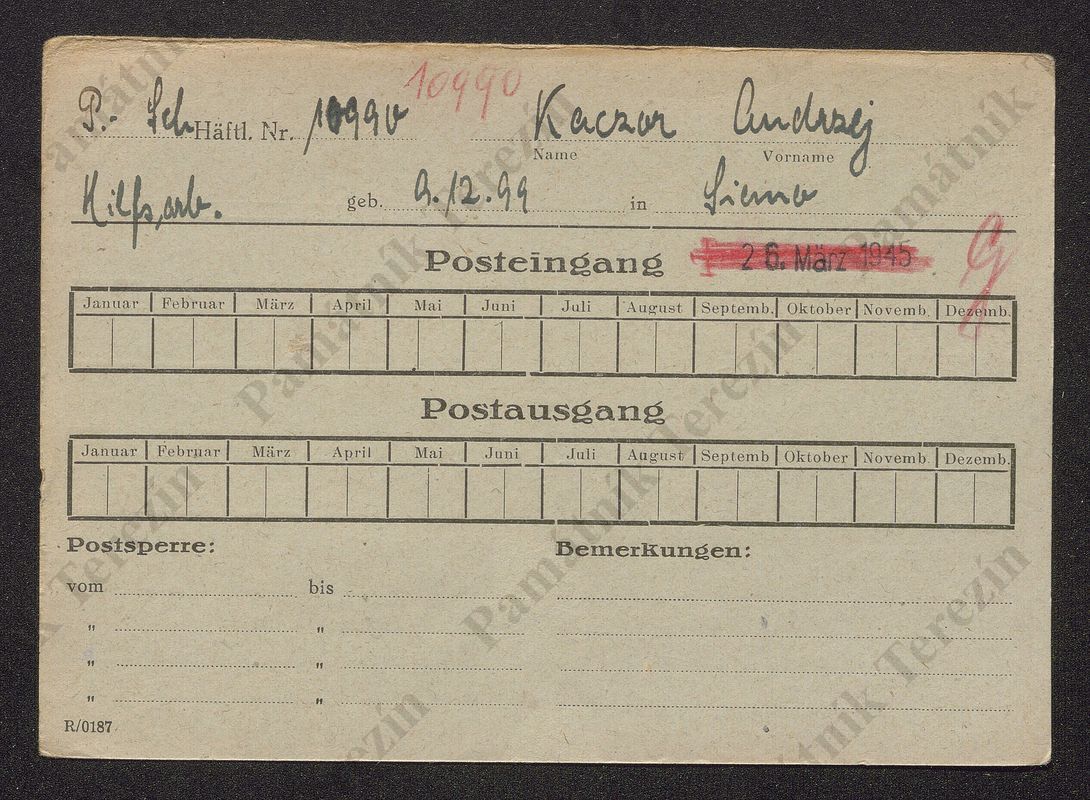 10990
P.- Sch Häftl. Nr. 10990 Kaczor Andrzej
Name Vorname
Hilfs,arb. geb. 9./12.99 in Sieno
Posteingang 26. März 1945
Januar Februar März April Mai Juni Juli August Septemb. Oktober Novemb. Dezemb.
Postausgang
Januar Februar März April Mai Juni Juli August Septemb Oktober Novemb. Dezemb.
Postsperre: Bemerkungen:
vom bis
" "
" "
" "
R/0187
Památník Terezín